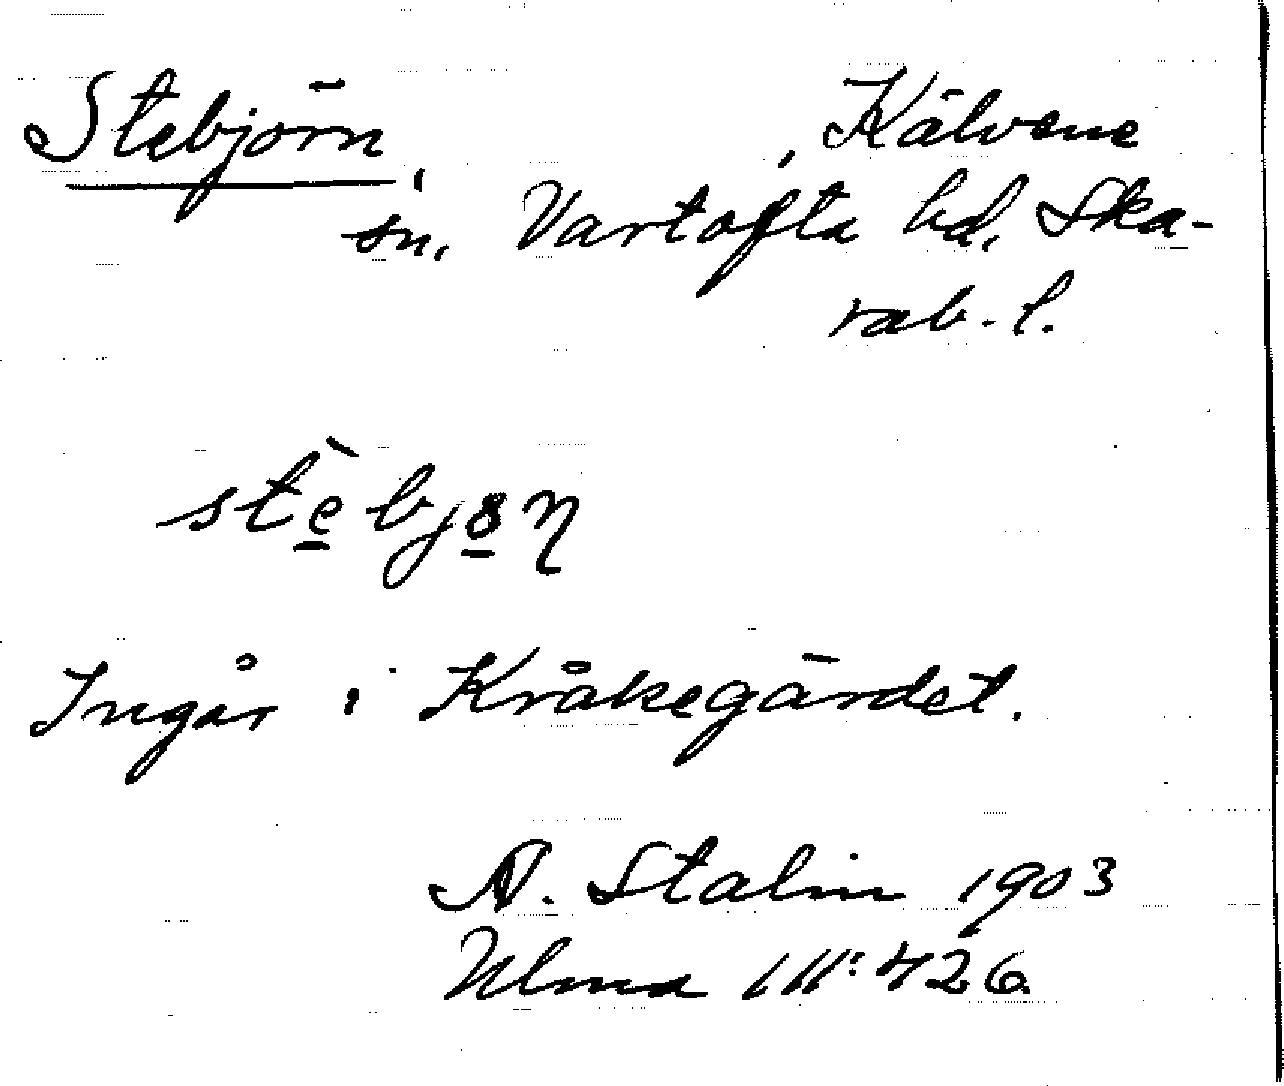 Stebjörn, , Kälvene
sn. Vartofta hd, Ska-
rab. l.
stèbjän
Ingår i Kråkegärdet.
N. Stalin 1903
Ulma 111:426